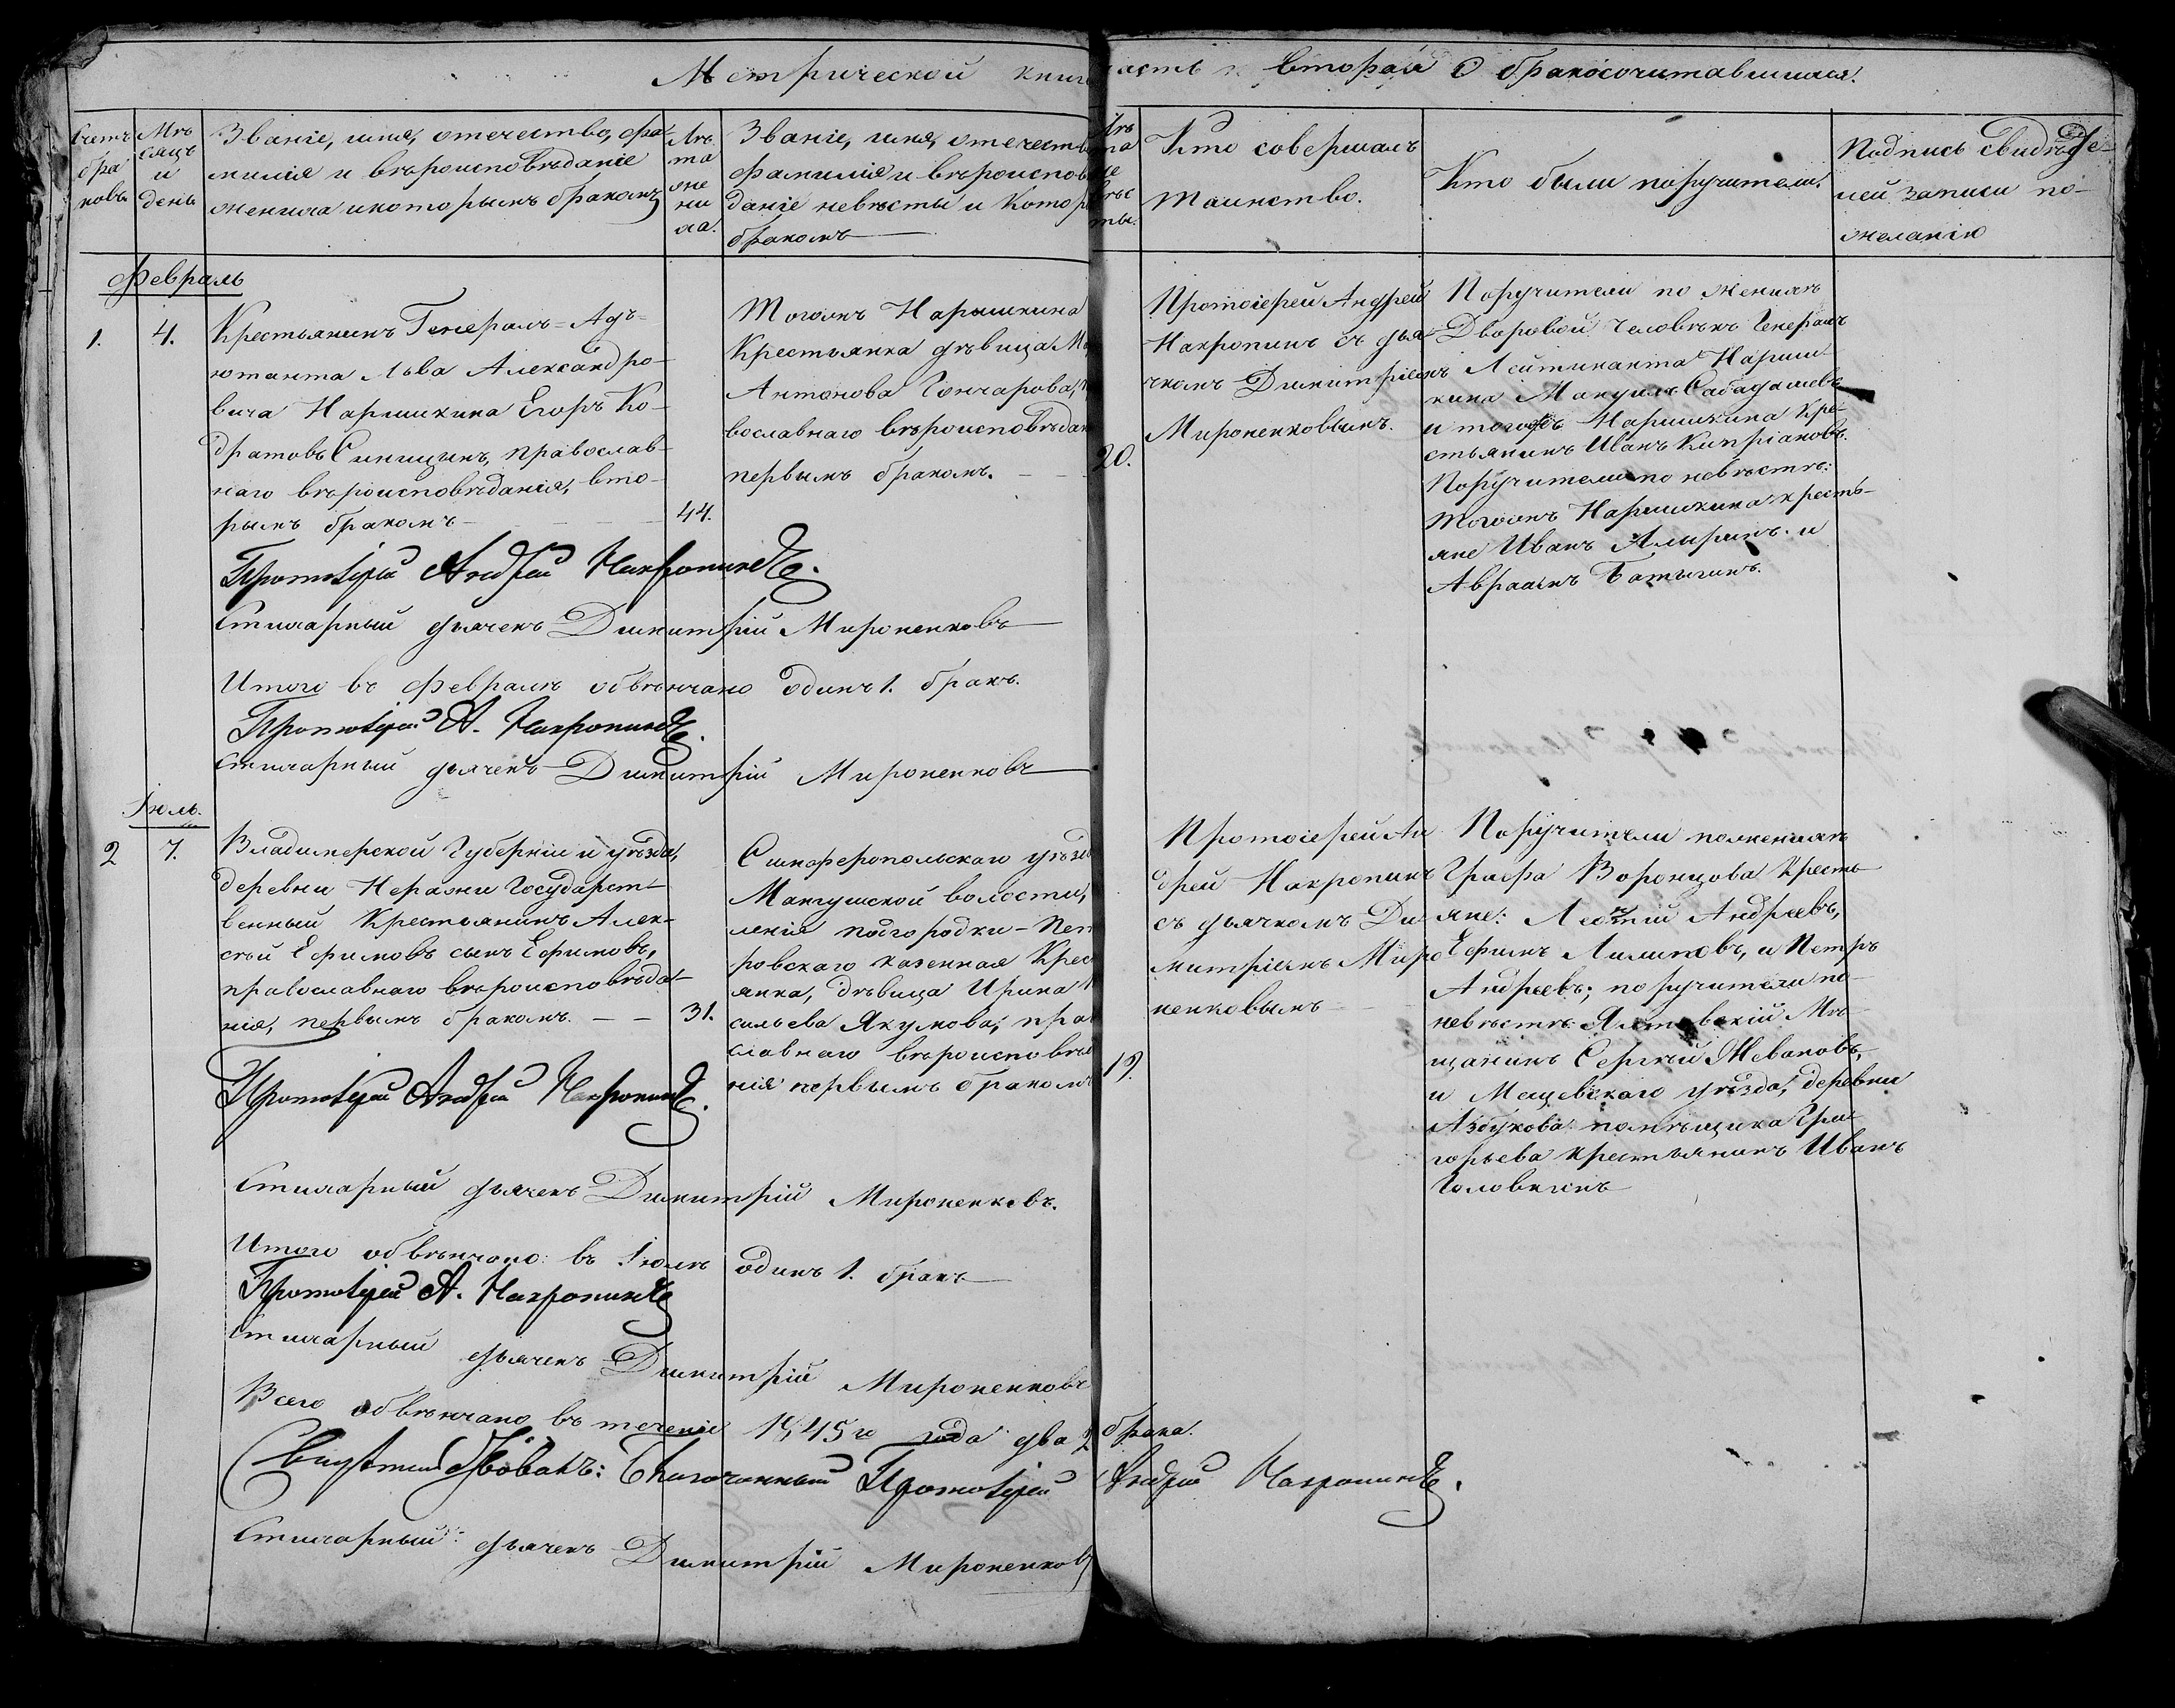 Метрической книг
часть вторая О бракосочитавшихся.
Счетъ
бра
ковъ
Мѣ
сяцъ
и
день
Званіе, имя, отечество, фа-
милія и вѣроисповѣданіе
жениха и которымъ бракомъ
Лѣ
та
же
ни
ха.
Званіе, имя, отечеств
фамилія и вѣроиспов
даніе невѣсты и котор
бракомъ
Лѣ
та
не
вѣс
ты.
Кто совершалъ
таинство.
Кто были поручители.
Подпись свидѣте-
лей записи по-
желанію
Февраль
1.
4.
Крестьянинъ Генералъ-Адъ-
ютанта Льва Александро-
вича Нарышкина Егоръ Ко-
дратовъ Синицинъ, православ-
наго вѣроисповѣданія, вто-
рымъ бракомъ
44.
Тогожъ Нарышкина
Крестьянка дѣвица
Антонова Гончарова,
вославнаго вѣроисповѣдан
первымъ бракомъ.
20.
Протоіерей Андрей
Накропинъ съ дья
чкомъ Димитріемъ
Мироненковымъ.
Поручители по женихѣ
Дворовой человѣкъ Генералъ
Лейтинанта Нариш-
кина
и тогожъ Наришкина кре-
стьянинъ Иванъ Кипріановъ.
Поручители по невѣстѣ:
тогожъ Наришкина кресть-
яне Иванъ и
Авраамъ Батыгинъ.
Протоіерей Андрей Накропинъ.
Стихарный дьячекъ Димитрій Мироненковъ
Итого въ Февралѣ обвѣнчано одинъ 1. бракъ.
Протоіерей А. Накропинъ.
Стихарный дьячекъ Димитрій Мироненковъ
Іюль.
2
7.
Владимерской Губерніи и уѣзда,
деревни Неражи Государст-
венный Крестьянинъ Алек-
сѣй Ефимовъ сынъ Ефимовъ,
православнаго вѣроисповѣда-
нія, первымъ бракомъ.
31.
Симферопольскаго уѣзд
Мангушской волости,
ленія подгородки-Пет
ровскаго казенная Крес
янка, дѣвица Ирина
сильева Якумова, пра
славнаго вѣроисповѣд
нія первымъ бракомъ
19.
Протоіерей Ан
дрей Накропинъ
съ дьячкомъ Ди
митріемъ Миро
ненковымъ
Поручители по женихѣ
Графа Воронцова Кресть
яне: Леонтій Андреевъ,
Ефимъ и Петръ
Андреевъ; поручители по
невѣстѣ: Ялтовскій Мѣ-
щанинъ Сергѣй Жевановъ,
и Мещевскаго уѣзда, деревни
Азбукова помѣщика Гри-
горьева крестьянинъ Иванъ
Головкинъ
Протоіерей Андрей Накропинъ.
Стихарный дьячекъ Димитрій Мироненковъ.
Итого обвѣнчано: въ Іюлѣ одинъ 1. бракъ
Протоіерей А. Накропинъ
Стихарный дьячекъ Димитрій Мироненковъ
Всего обвѣнчано въ теченіе 1845го года два 2 брака.
Свидѣтельствовалъ: Благочинный Протоіерей Андрей Накропинъ.
Стихарный дьячекъ Димитрій Мироненков